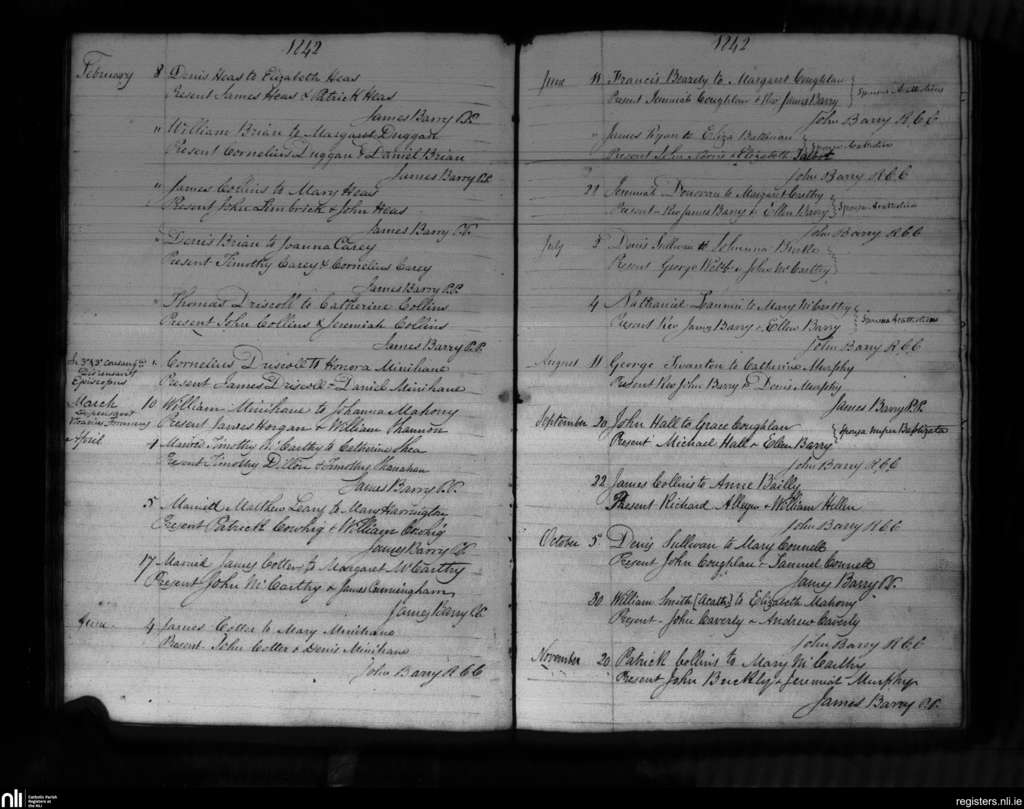 1842
February 8 Denis Heas to Elizabeth Heas
Present James Heas & Patrick Heas
James Barry P.P.
" William Brian to Margaret Duggan
Present Cornelius Duggan & Daniel Brian
James Barry P.P.
" James Collins to Mary Heas
Present John Limbrick & John Heas
James Barry P.P.
" Denis Brian to Joanna Carey
Present Timothy Carey & Cornelius Carey
James Barry P.P.
" Thomas Driscoll to Catherine Collins
Present John Collins & Jeremiah Collins
James Barry P.P.
In 3° & 3°
" Cornelius Driscoll to Honora Minihane
Episcopus
Present James Driscoll & Daniel Minihane
March 10 William Minihane to Johanna Mahony
Present James Horgan & William Shannon
April 4 Married Timothy McCarthy to Catherine Shea
Present Timothy Dillon & Timothy Shanahan
James Barry P.P.
5 Married Matthew Leary to Mary Harrington
Present Patrick Cowhig & William Cowhig
James Barry P.P.
17 Married James Cotter to Margaret McCarthy
Present John McCarthy & James Cunningham
James Barry P.P.
June 4 James Cotter to Mary Minihane
Present John Cotter & Denis Minihane
John Barry R.C.C
1842
June 11 Francis Beazely to Margaret Coughlan
Present Jeremiah Coughlan & Rev James Barry
John Barry R.C.C
" James Ryan to Eliza Bateman
Present John Norris & Elizabeth Talbot
John Barry R.C.C
21 Jeremiah Donovan to Margaret Carthy
Present Rev James Barry & Ellen Barry
John Barry R.C.C
July 3 Denis Sullivan to Johanna Burke
Present George Webb & John McCarthy
4 Nathaniel to Mary McCarthy
Present Rev James Barry & Ellen Barry
John Barry R.C.C
August 11 George Swanton to Catherine Murphy
Present Rev John Barry & Denis Murphy
James Barry P.P.
September 20 John Hall to Grace Coughlan
Sponsa nuper Baptizata
Present Michael Hall & Ellen Barry
John Barry R.C.C
22 James Collins to Anne Bailly
Present Richard & William Hellen
John Barry R.C.C
October 5 Denis Sullivan to Mary Connell
Present John Coughlan & Samuel Connell
James Barry P.P.
30 William Smith [Acath:] to Elizabeth Mahony
Present John Caverly & Andrew Caverly
John Barry R.C.C
November 20 Patrick Collins to Mary McCarthy
Present John Buckley & Jeremiah Murphy
James Barry P.P.
nli
Catholic Parish
Registers at
the NLI
registers.nli.ie